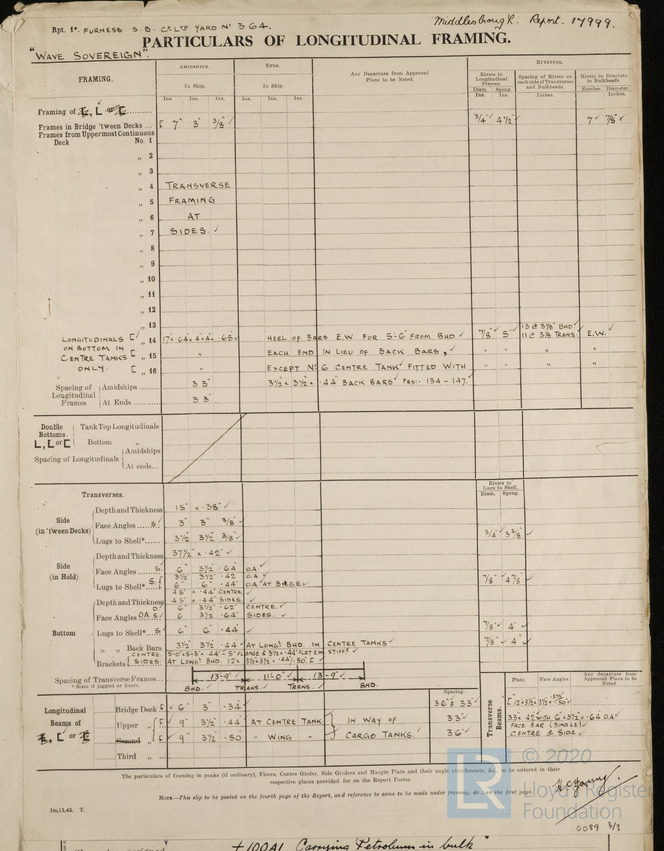 Rpt. 1*. FURNESS S.B. Co LTD YARD No 364.
Middlesbrough. Report. 17999.
"WAVE SOVEREIGN".
PARTICULARS OF LONGITUDINAL FRAMING.
FRAMING.
AMIDSHIPS.
ENDS.
Any Departure from Approved Plans to be Noted.
RIVETING.
In Ship.
In Ship.
Rivets in Longitudinal Frames.
Spacing of Rivets on each side of Transverses and Bulkheads.
Rivets in Brackets to Bulkheads.
Ins. Ins. Ins. Ins. Ins. Ins.
Diam. Spcng. Ins. Ins.
Inches.
Number. Diameter Inches.
Framing of
Frames in Bridge 'tween Decks [ 7" 3" 3/8" 3/4" 4 1/2" 7 7/8"
Frames from Uppermost Continuous Deck No. 1
„ 2
„ 3
„ 4 TRANSVERSE
„ 5 FRAMING
„ 6 AT
„ 7 SIDES.
„ 8
„ 9
„ 10
„ 11
„ 12
„ 13
LONGITUDINALS [ „ 14 HEEL OF BARS E.W. FOR 5'-6" FROM BHD 7/8" 5" E.W.
ON BOTTOM IN
CENTRE TANKS [ „ 15 " EACH END IN LIEU OF BACK BARS, " " " "
ONLY. [ „ 16 " EXCEPT No 6 CENTRE TANK FITTED WITH " " " "
Spacing of Longitudinal Frames
Amidships 33" 3 1/2" x 3 1/2" x .44" BACK BARS FRS. 134 - 147.
At Ends 33"
Double Bottoms.
L, [, or [
Tank Top Longitudinals
Bottom „
Spacing of Longitudinals
Amidships
At ends
Rivets in Lugs to Shell.
Diam. Spcng.
Transverses.
Side (in 'tween Decks)
Depth and Thickness 15" x .38"
Face Angles S. 3" 3" 3/8"
Lugs to Shell* 3 1/2" 3 1/2" 3/8" 3/4" 3 3/8"
Side (in Hold)
Depth and Thickness 37 1/2" x .42"
Face Angles S. 6" 3 1/2" .64 O.A.
3 1/2" 3 1/2" .42 O.A.
Lugs to Shell* S. 6" 6" .44" O.A. AT BILGE 7/8" 4 7/8"
Bottom
45" x .44" CENTRE
Depth and Thickness 45" x .44" SIDES.
6" 3 1/2" .62" CENTRE.
Face Angles O.A. S. 6" 3 1/2" .64 SIDES.
Lugs to Shell* S. 6" 6" .44 7/8" 4"
„ „ Back Bars 3 1/2" 3 1/2" .44 AT LONGL BHD. IN CENTRE TANKS 7/8" 4"
Brackets
CENTRE
SIDES. AT LONGL BHD.
Spacing of Transverse Frames
13'-9" 11'-0" 13'-9"
* State if joggled or liners.
BHD. TRANS. TRANS. BHD.
Longitudinal Beams of
Spacing.
Bridge Deck [ 6" 3" .34 36" & 33"
Upper „ [ 9" 3 1/2" .44 AT CENTRE TANK IN WAY OF 33"
Second „ [ 9" 3 1/2" .50 " WING " CARGO TANKS. 36"
Third „
Transverse Beams.
Plate. Face Angles.
Any departure from Approved Plans to be Noted.
33 x .42 WITH 6 x 3 1/2 x .64 O.A.
FACE BAR (SINGLE)
CENTRE & SIDE.
The particulars of framing in peaks (if ordinary), Floors, Centre Girder, Side Girders and Margin Plate and their angle attachments, &c., to be entered in their
respective places provided for on the Report Forms.
NOTE.—This slip to be posted on the fourth page of the Report, and reference to same to be made under framing, &c., on the first page.
1m,11,42. T.
© 2020
LR
Lloyd's Register
Foundation
0089 3/3
+100A1 Carrying Petroleum in bulk"